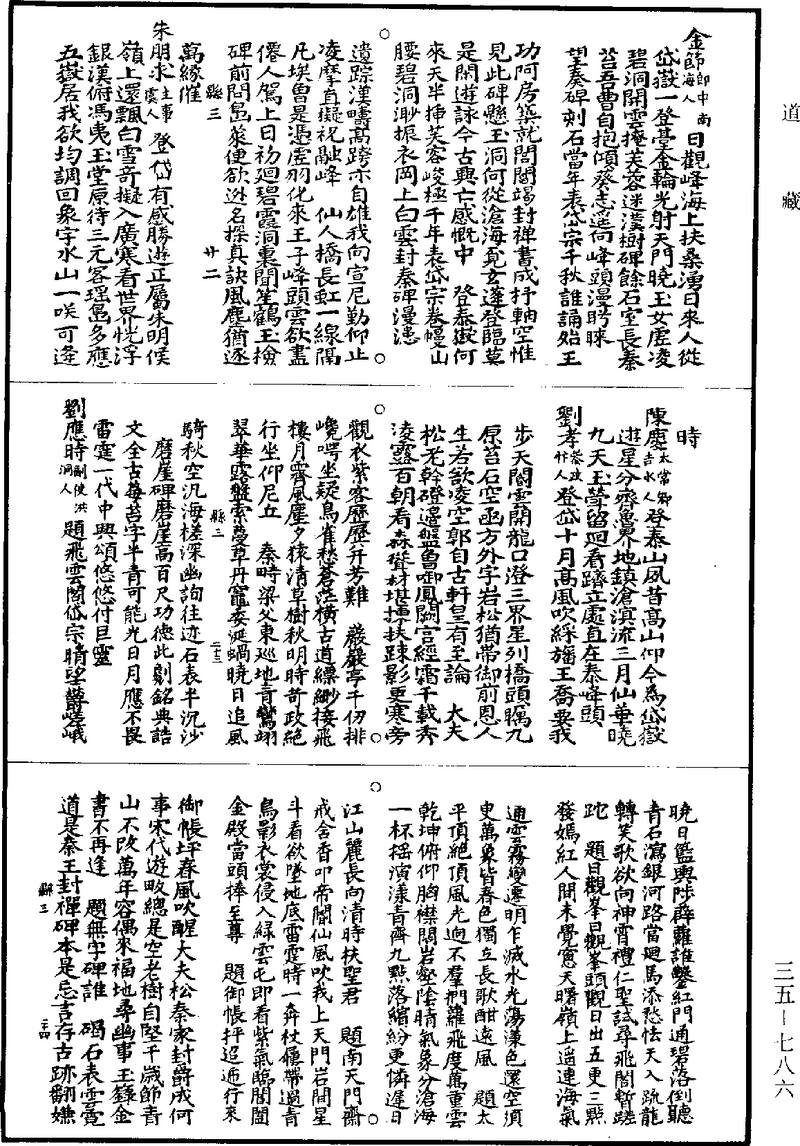 道藏
三五—七八六
金節郎中南海人日觀峰海上扶桑湧日來人從
岱嶽一登臺金輪光射天門曉玉女虛凌
碧洞開雲掩芙蓉迷漢樹碑餘石室長秦
苔吾曹自抱傾葵志遥向峰頭漫盼睞
望秦碑刻石當年表岱宗千秋誰誦始王
功阿房築就閭閻竭封禅書成抒軸空惟
見此碑懸玉洞何從滄海覓玄蓬登臨莫
是閑遊詠今古興亡感慨中　登泰嶽何
來天半揷芙蓉峻極千年表岱宗卷幔山
腰碧洞渺振衣岡上白雲封秦碑漫漶
遺踪漢疇高跨亦自雄我向宣尼勤仰止
凌摩直擬祝融峰　仙人橋長虹一線隔
凡埃曽是憑虛羽化來王子峰頭雲欲盡
僊人駕上日初迴碧霞洞裏聞笙鶴玉檢
碑前問島萊便欲迯名探真訣風塵猶逐
縣三　廿二
萬緣催
朱朋求主事虞人登岱有感勝遊正屬朱明候
嶺上還飄白雪竒擬入廣寒看世界恍浮
銀漢俯馮夷玉堂原待三元客瑶島多應
五嶽居我欲均調回象字水山一咲可逢
時
陳慶太常卿吉水人登泰山夙昔高山仰今為岱嶽
遊星分齊魯界地鎮滄溟流三月仙華曉
九天玉蓥留迴看躋立處直在泰峰頭
劉孝叅政什人登岱十月高風吹綵旛王喬要我
步天閽雲開龍口澄三界星列橋頭矚九
原苔石空函方外字岩松猶帶御前恩人
生若欲凌空郭自古軒皇有至論　大夫
松老幹磴邊盤魯啣鳳闕官經霜千載秀
淩露百朝看森聳材堪㨿扶踈影更寒旁
觀衣紫客歷歷升芳難　巖巖亭千仞排
巉㟧坐疑鳥雀愁蒼陰横古道縹緲接飛
樓月霽風塵夕猿清草樹秋明時苛政絕
行坐仰尼丘　秦時梁父東巡地青鸞翊
翠華露盤縈蔓草丹竈委涎蝸曉日追風
縣三　二十三
騎秋空汎海槎深幽詢往迹石表半沉沙
磨崖碑磨崖高百尺功德此劖銘典誥
文全古莓苔字半青可能光日月應不畏
雷霆一代中興頌悠悠付巨靈
劉應時副使洪洞人題飛雲閣岱宗晴望鬱嵯峨
曉日籃輿陟薜蘿誰鑿紅門通碧落倒聽
青石瀉銀河路當廻馬添愁怯天入䟽龍
轉笑歌欲向神霄禮仁聖試尋飛閣暫蹉
跎　題日觀峯日觀峯頭觀日出五更三㸃
發嫣紅人間未覺窻天曙嶺上遥連海氣
通雲霧變遷明乍滅水光蕩漾色還空須
臾萬象皆春色獨立長歌酣遠風　題太
平頂絕頂風光逈不羣捫蘿飛度萬重雲
乾坤俯仰胸襟闊岩壑陰晴氣象分滄海
一杯揺演漾青齊九㸃落繽紛更憐遲日
江山麗長向清時扶聖君　題南天門齋
戒含香叩帝閽仙風吹我上天門岩間星
斗看欲墜地底雷霆時一奔杖履帶過青
鳥影衣裳侵入緑雲屯即看紫氣臨閶闔
金殿當頭捧至尊　題御帳坪迢遞行來
御帳坪春風吹醒大夫松秦家封爵成何
事宋代遊畋總是空老樹自堅千歲節青
山不改萬年容偶來福地尋幽事玉錄金
書不再逢　題無字碑誰　碣石表雲霓
道是秦王封禪碑本是忘言存古跡翻嫌
縣三　二十四